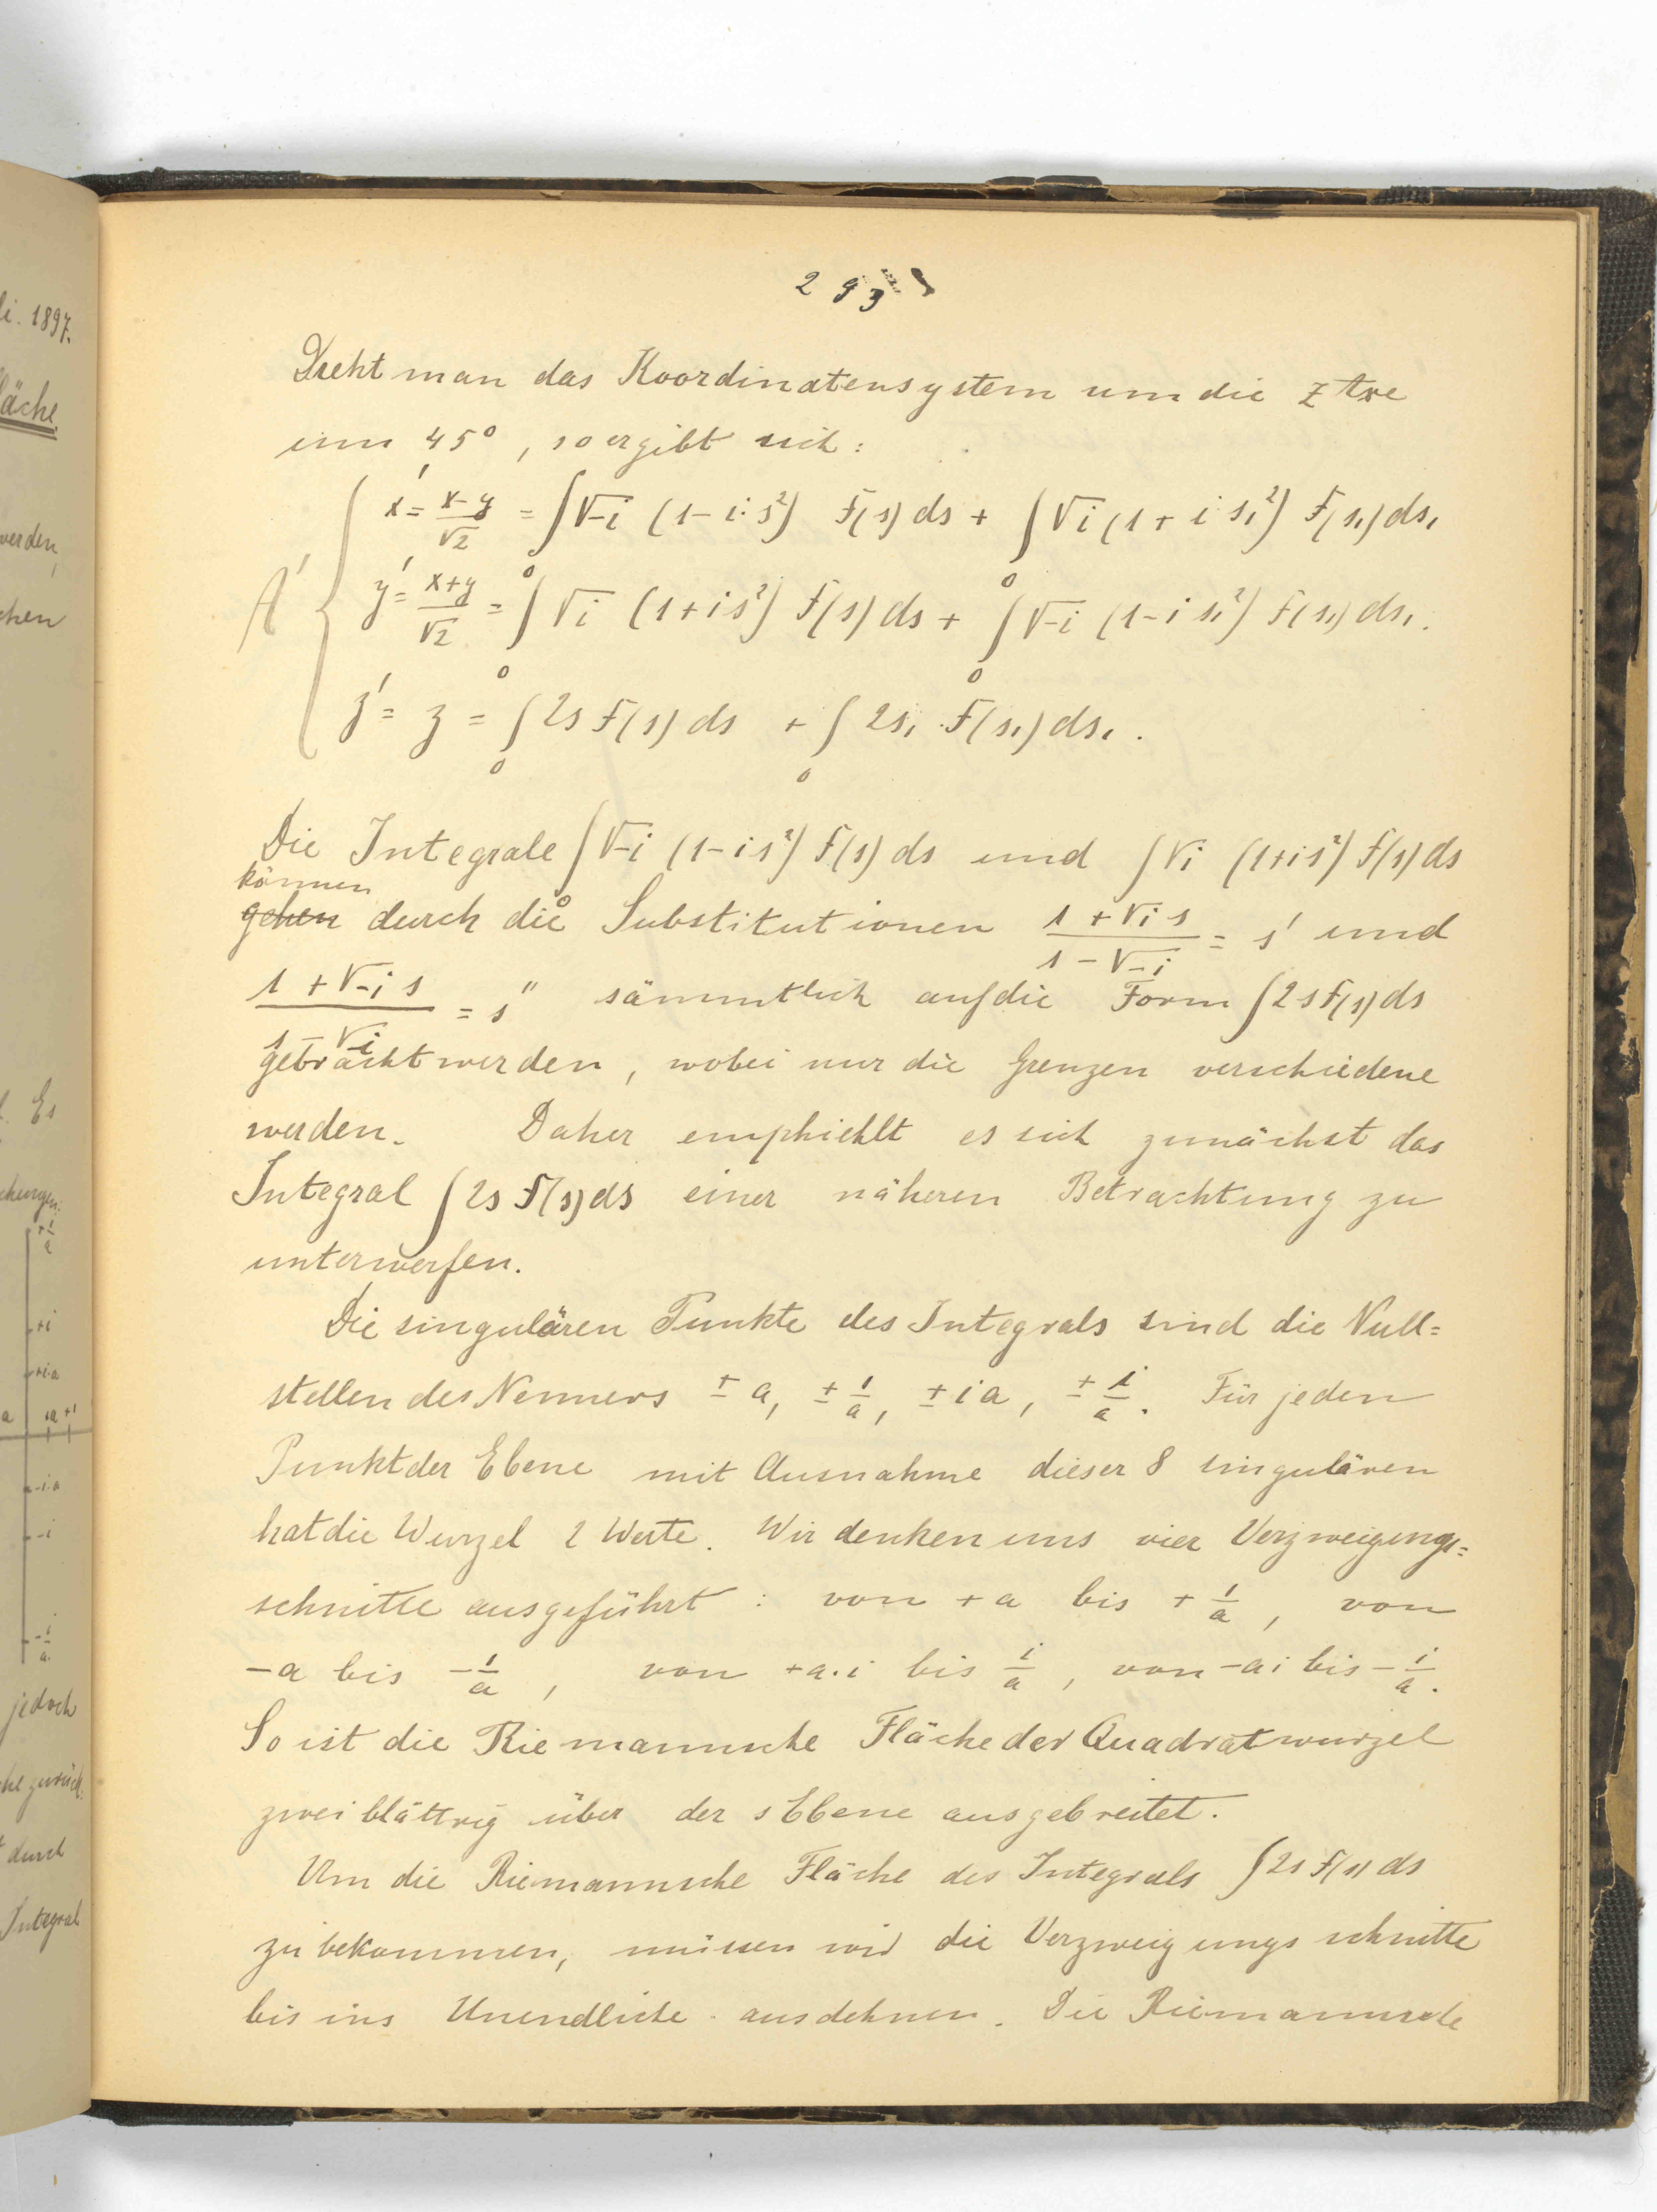 293
Dreht man das Koordinatensystem um die z Axe
um 45°, so ergibt sich:
A' { x' = (x-y)/√2 = ∫₀ √-i (1 - i s²) F(s) ds + ∫₀ √i (1 + i s₁²) F(s₁) ds₁
y' = (x+y)/√2 = ∫₀ √i (1 + i s²) F(s) ds + ∫₀ √-i (1 - i s₁²) F(s₁) ds₁.
z' = z = ∫₀ 2s F(s) ds + ∫₀ 2s₁ · F(s₁) ds₁.
Die Integrale ∫₀ √-i (1 - i s²) F(s) ds und ∫ √i (1 + i s²) F(s) ds
können
gehen durch die Substitutionen (1 + √i s)/(1 - √-i) = s' und
(1 + √-i s)/(1 - √i) = s'' sämmtlich auf die Form ∫ 2s F(s) ds
gebracht werden, wobei nur die Grenzen verschiedene
werden. Daher emphiehlt es sich zunächst das
Integral ∫ 2s F(s) ds einer näheren Betrachtung zu
unterwerfen.
Die singulären Punkte des Integrals sind die Null=
stellen des Nenners ± a, ± 1/a, ± i a, ± i/a. Für jeden
Punkt der Ebene mit Ausnahme dieser 8 singulären
hat die Wurzel 2 Werte. Wir denken uns vier Verzweigungs=
schnitte ausgeführt: von + a bis + 1/a, von
- a bis - 1/a, von + a·i bis i/a, von - ai bis - i/a.
So ist die Riemannsche Fläche der Quadratwurzel
zweiblättrig über der s Ebene ausgebreitet.
Um die Riemannsche Fläche des Integrals ∫ 2s F(s) ds
zu bekommen, müssen wir die Verzweigungsschnitte
bis ins Unendliche ausdehnen. Die Riemannsche
li. 1897.
läche
werden,
chen
l. Es
chungen:
+ 1/a
+i
+i·a
a
+a +1
-i·a
-i
- i/a.
jedoch
he zurück:
durch
Integral